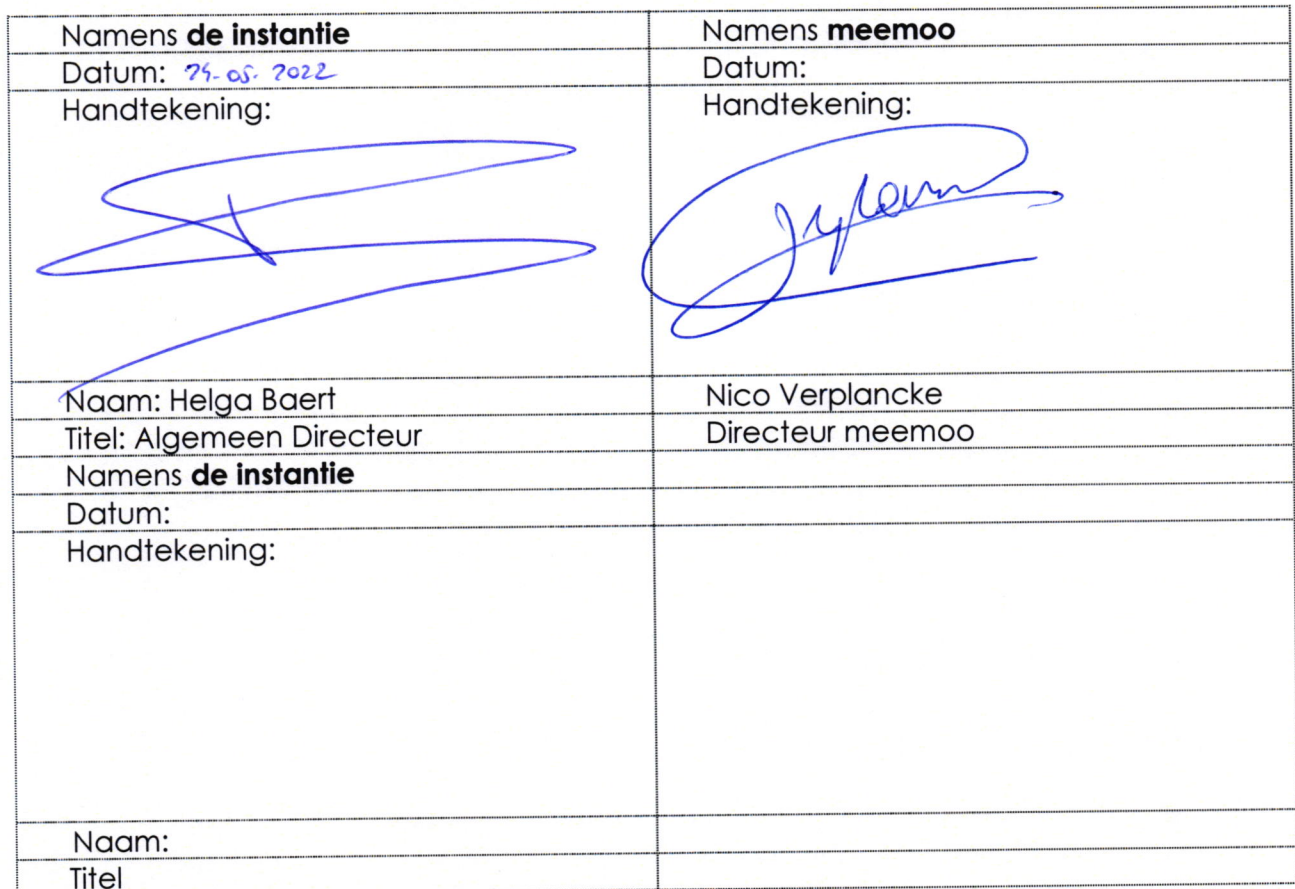 Namens de instantie
Namens meemoo
Datum: 24-05-2022
Datum:
Handtekening:
Handtekening:
Naam: Helga Baert
Nico Verplancke
Titel: Algemeen Directeur
Directeur meemoo
Namens de instantie
Datum:
Handtekening:
Naam:
Titel